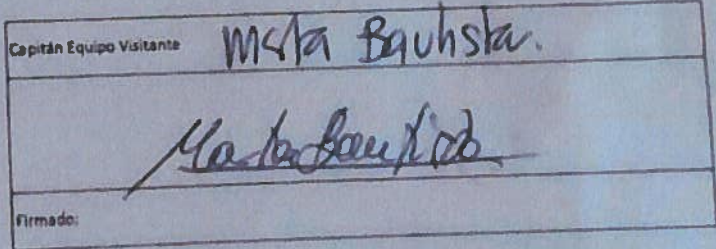 Capitán Equipo Visitante Marta Bautista.
Marta Bautista
Firmado: